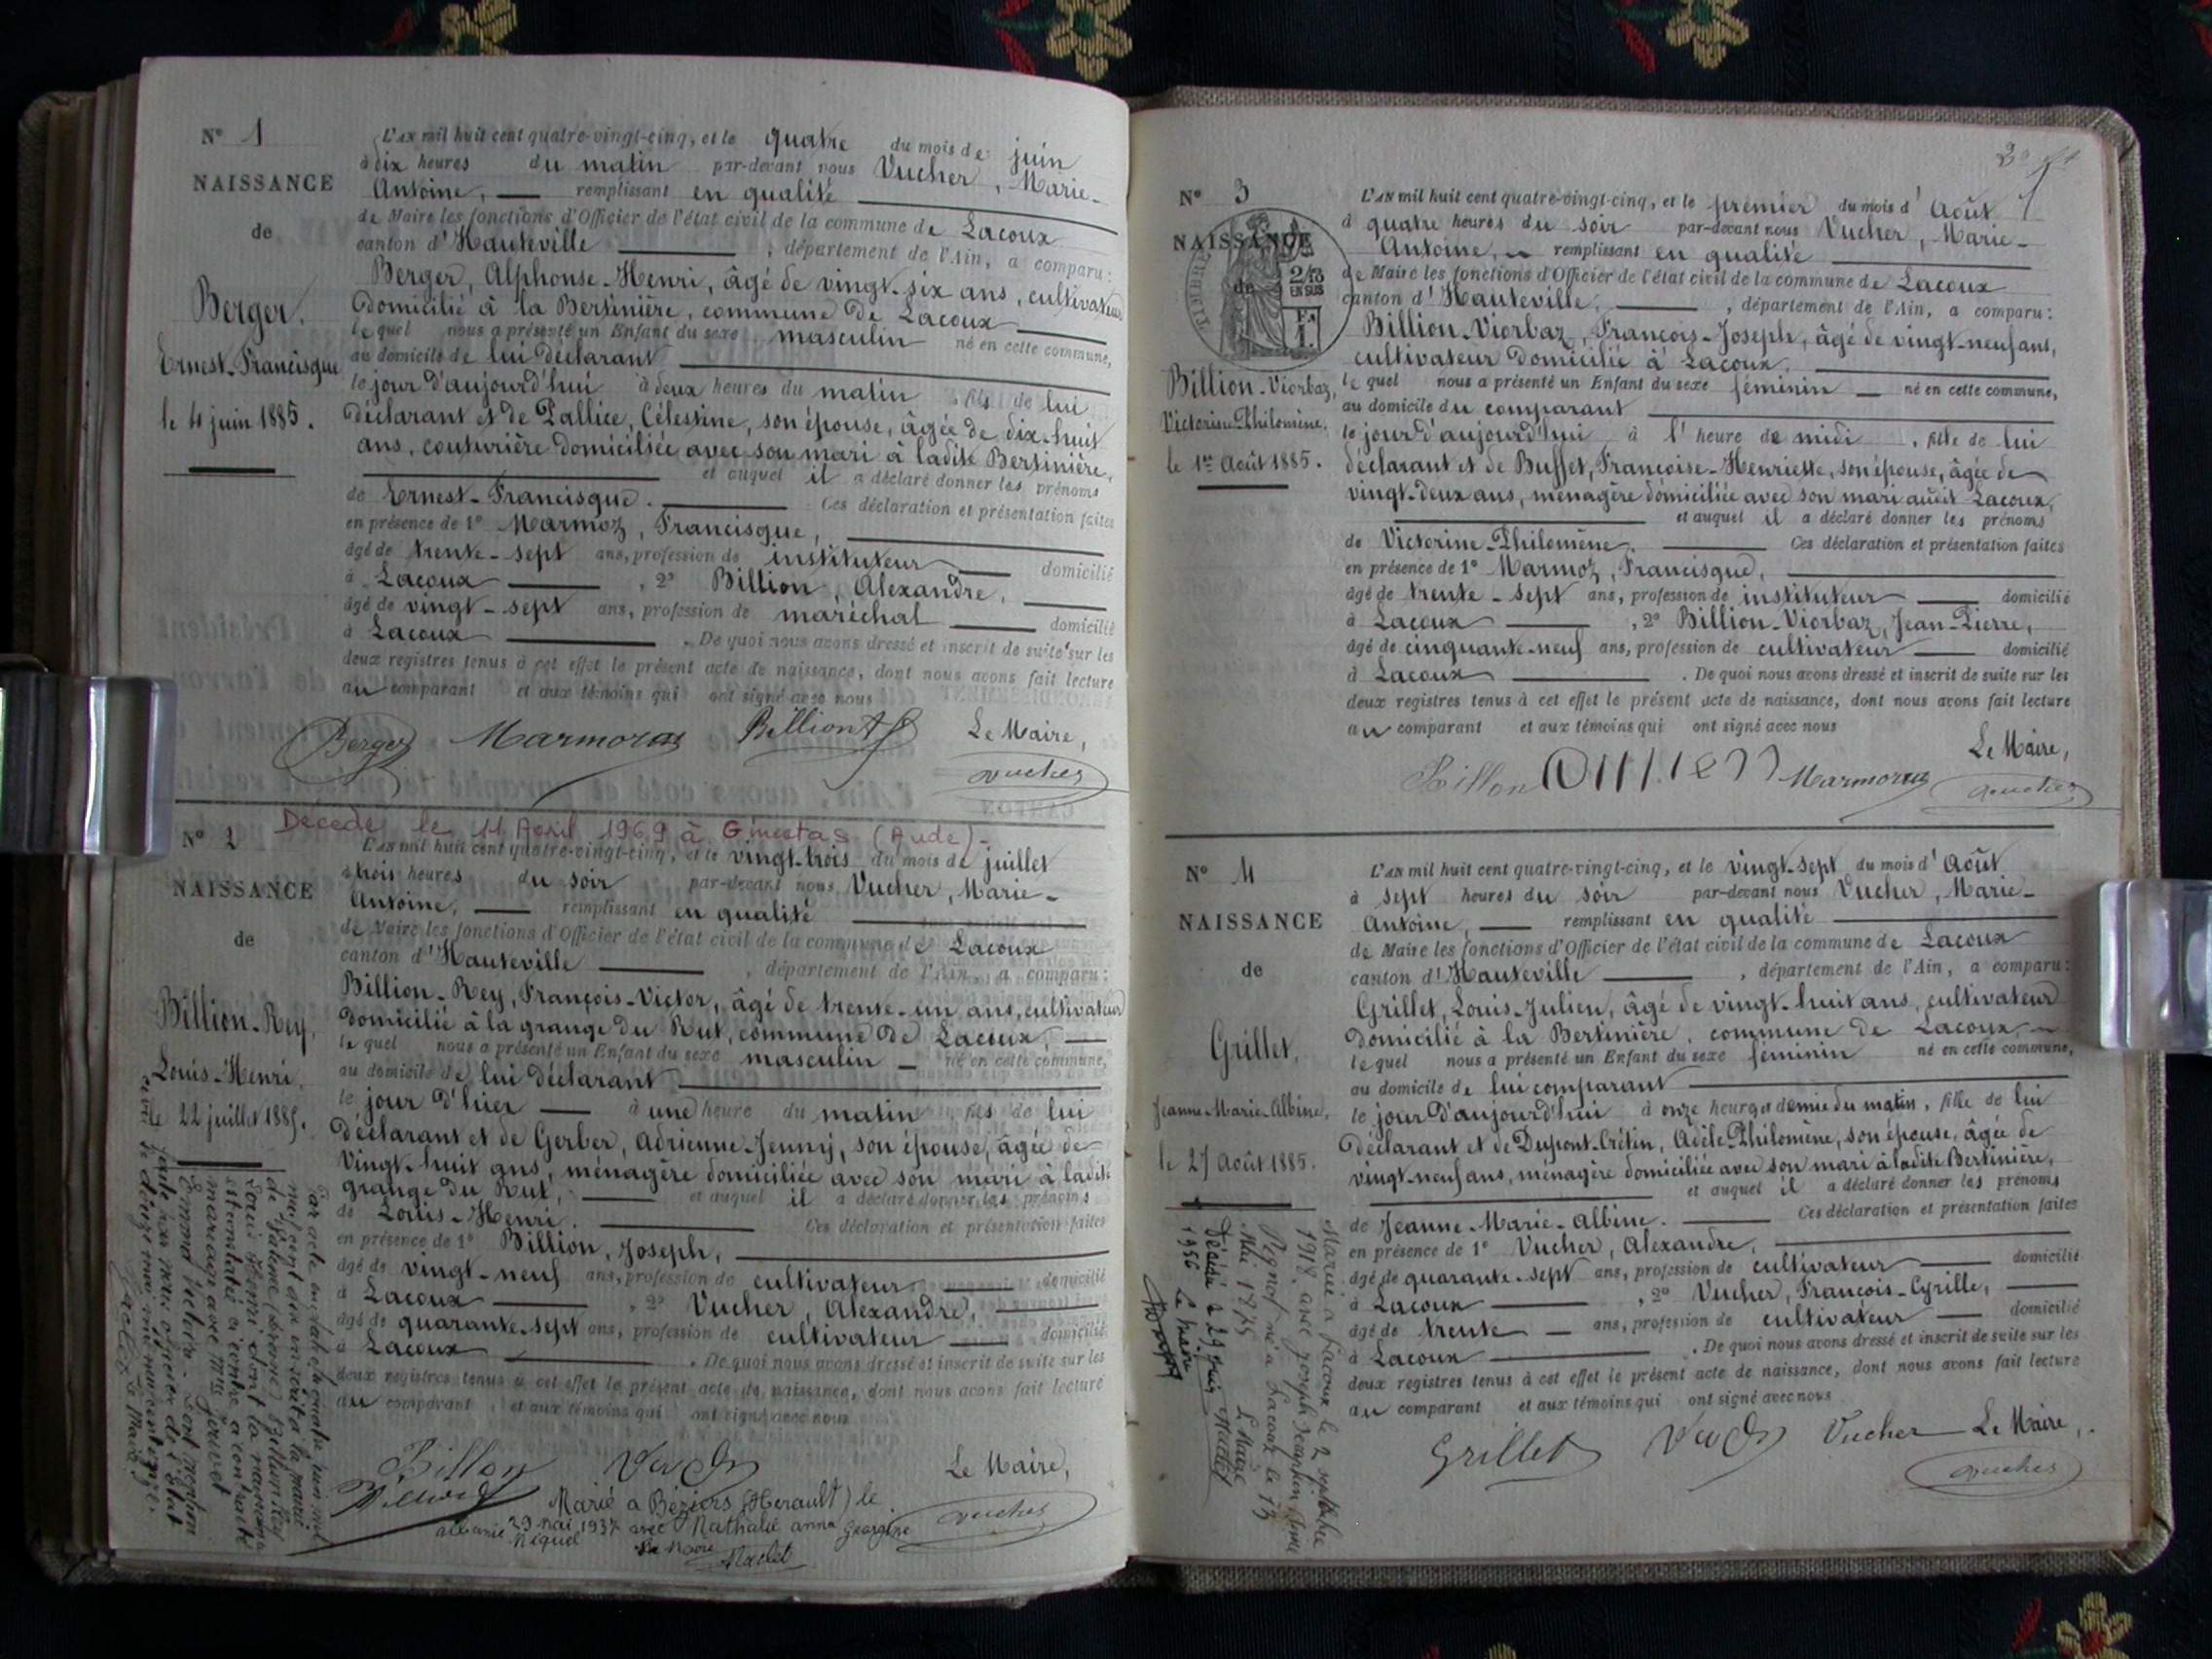 N° 1
NAISSANCE
de
Berger,
Ernest-Francisque
le 4 juin 1885.
L'AN mil huit cent quatre-vingt-cinq, et le quatre du mois de juin
à dix heures du matin par-devant nous Vucher, Marie-
Antoine, remplissant en qualité
de Maire les fonctions d'Officier de l'état civil de la commune de Lacoux
canton d'Hauteville, département de l'Ain, a comparu:
Berger, Alphonse-Henri, âgé de vingt-six ans, cultivateur
domicilié à la Bertinière, commune de Lacoux
lequel nous a présenté un Enfant du sexe masculin né en cette commune,
au domicile de lui déclarant
le jour d'aujourd'hui à deux heures du matin, fils de lui
déclarant et de Pallice, Célestine, son épouse, âgée de dix-huit
ans, couturière domiciliée avec son mari à ladite Bertinière,
et auquel il a déclaré donner les prénoms
de Ernest-Francisque. Ces déclaration et présentation faites
en présence de 1° Marmoz, Francisque,
âgé de trente-sept ans, profession de instituteur domicilié
à Lacoux, 2° Billion, Alexandre,
âgé de vingt-sept ans, profession de maréchal domicilié
à Lacoux. De quoi nous avons dressé et inscrit de suite sur les
deux registres tenus à cet effet le présent acte de naissance, dont nous avons fait lecture
au comparant et aux témoins qui ont signé avec nous
Berger Marmoz Billion Le Maire,
Vucher
Décédé le 11 Avril 1969 à Ginestas (Aude)-
N° 2
NAISSANCE
de
Billion-Rey,
Louis-Henri,
le 22 juillet 1885.
L'AN mil huit cent quatre-vingt-cinq, et le vingt-trois du mois de juillet
à trois heures du soir par-devant nous Vucher, Marie-
Antoine, remplissant en qualité
de Maire les fonctions d'Officier de l'état civil de la commune de Lacoux
canton d'Hauteville, département de l'Ain, a comparu:
Billion-Rey, François-Victor, âgé de trente-un ans, cultivateur
domicilié à la grange du Rut, commune de Lacoux,
lequel nous a présenté un Enfant du sexe masculin né en cette commune,
au domicile de lui déclarant
le jour d'hier à une heure du matin fils de lui
déclarant et de Gerber, Adrienne-Jenny, son épouse, âgée de
vingt-huit ans, ménagère domiciliée avec son mari à ladite
grange du Rut, et auquel il a déclaré donner les prénoms
de Louis-Henri. Ces déclaration et présentation faites
en présence de 1° Billion, Joseph,
âgé de vingt-neuf ans, profession de cultivateur domicilié
à Lacoux, 2° Vucher, Alexandre,
âgé de quarante-sept ans, profession de cultivateur domicilié
à Lacoux. De quoi nous avons dressé et inscrit de suite sur les
deux registres tenus à cet effet le présent acte de naissance, dont nous avons fait lecture
au comparant et aux témoins qui ont signé avec nous
Billon Le Maire,
Billion Vucher
Marié a Béziers (Herault) le
29 mai 1937 avec Nathalie anna Georgine
Niquel
Le Maire
N° 3
NAISSANCE
de
TIMBRE
2/10
EN SUS
Billion-Viorbaz,
Victorine-Philomène,
le 1er Août 1885.
L'AN mil huit cent quatre-vingt-cinq, et le premier du mois d'Août
à quatre heures du soir par-devant nous Vucher, Marie-
Antoine, remplissant en qualité
de Maire les fonctions d'Officier de l'état civil de la commune de Lacoux
canton d'Hauteville, département de l'Ain, a comparu:
Billion-Viorbaz, François-Joseph, âgé de vingt-neuf ans,
cultivateur domicilié à Lacoux,
lequel nous a présenté un Enfant du sexe féminin né en cette commune,
au domicile du comparant
le jour d'aujourd'hui à l'heure de midi, fille de lui
déclarant et de Buffet, Françoise-Henriette, son épouse, âgée de
vingt-deux ans, ménagère domiciliée avec son mari audit Lacoux,
et auquel il a déclaré donner les prénoms
de Victorine-Philomène. Ces déclaration et présentation faites
en présence de 1° Marmoz, Francisque,
âgé de trente-sept ans, profession de instituteur domicilié
à Lacoux, 2° Billion-Viorbaz, Jean-Pierre,
âgé de cinquante-neuf ans, profession de cultivateur domicilié
à Lacoux. De quoi nous avons dressé et inscrit de suite sur les
deux registres tenus à cet effet le présent acte de naissance, dont nous avons fait lecture
au comparant et aux témoins qui ont signé avec nous
Le Maire,
Billon Marmoz Vucher
N° 4
NAISSANCE
de
Grillet,
Jeanne-Marie-Albine,
le 27 Août 1885.
L'AN mil huit cent quatre-vingt-cinq, et le vingt-sept du mois d'Août
à sept heures du soir par-devant nous Vucher, Marie-
Antoine, remplissant en qualité
de Maire les fonctions d'Officier de l'état civil de la commune de Lacoux
canton d'Hauteville, département de l'Ain, a comparu:
Grillet, Louis-Julien, âgé de vingt-huit ans, cultivateur
domicilié à la Bertinière, commune de Lacoux,
lequel nous a présenté un Enfant du sexe féminin né en cette commune,
au domicile de lui comparant
le jour d'aujourd'hui à onze heures et demie du matin, fille de lui
déclarant et de Dupont-Crétin, Adèle-Philomène, son épouse, âgée de
vingt-neuf ans, ménagère domiciliée avec son mari à ladite Bertinière,
et auquel il a déclaré donner les prénoms
de Jeanne-Marie-Albine. Ces déclaration et présentation faites
en présence de 1° Vucher, Alexandre,
âgé de quarante-sept ans, profession de cultivateur domicilié
à Lacoux, 2° Vucher, François-Cyrille,
âgé de trente ans, profession de cultivateur domicilié
à Lacoux. De quoi nous avons dressé et inscrit de suite sur les
deux registres tenus à cet effet le présent acte de naissance, dont nous avons fait lecture
au comparant et aux témoins qui ont signé avec nous
Grillet Vucher Le Maire,
Vucher
Marié a Lacoux le 2 septembre
1918, avec Joseph
né a Lacoux le 13
Mai 1875 Le Maire
Décédée le 29 juin
1956 Le maire